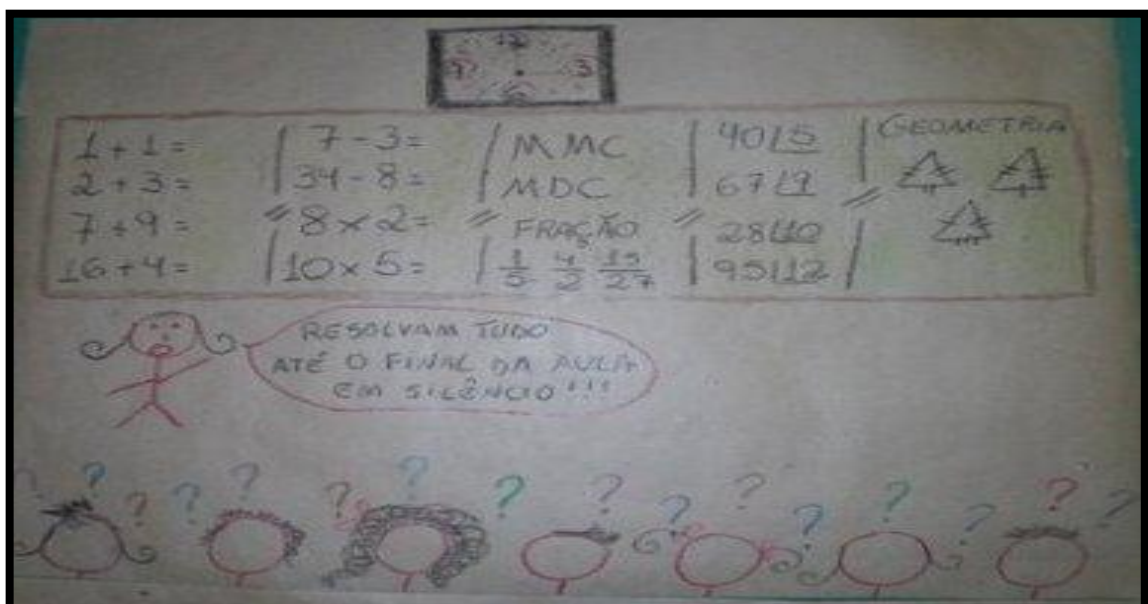 12
9 3
6
1 + 1 =
2 + 3 =
7 + 9 =
16 + 4 =
7 - 3 =
34 - 8 =
8 x 2 =
10 x 5 =
MMC
MDC
FRAÇÃO
1/5 4/2 15/27
40 5
67 9
28 10
95 12
GEOMETRIA
RESOLVAM TUDO
ATÉ O FINAL DA AULA
EM SILÊNCIO!!!
? ? ? ? ? ? ? ? ? ? ? ? ? ? ? ?